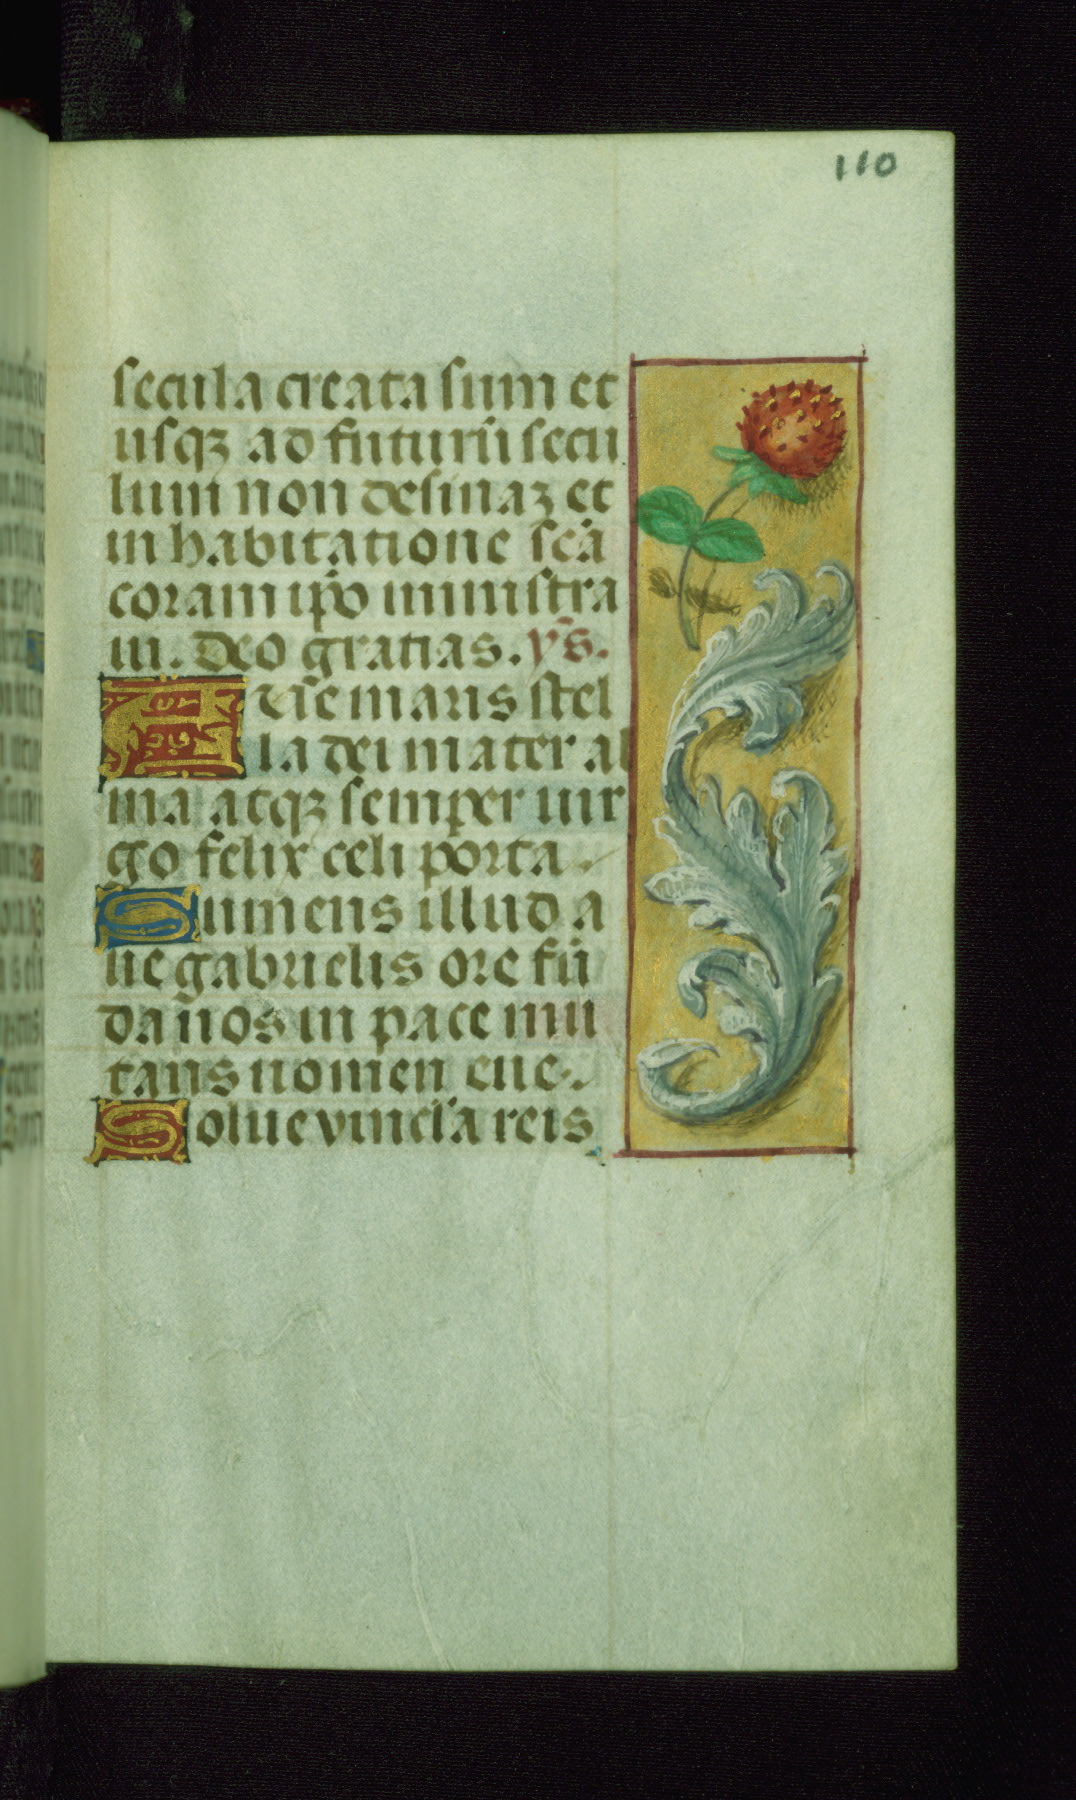 110
secula creata sum et
usqꝫ ad futurū secu
lum non desinaꝫ et
in habitatione scā
coram ip̄o ministra
ui. Deo gratias. ym̄s.
Aue maris stel
la dei mater al
ma atqꝫ semper uir
go felix celi porta
Sumens illud a
ue gabrielis ore fū
da nos in pace mu
tans nomen eue.
Solue vincla reis